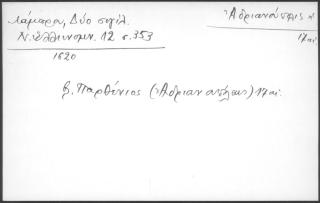 Λάμπρου, Δύο σιγίλ.
Ν. Ελληνομν. 12 σ. 353
1620
Ἀδριανούπολις
17 αἰ.
β. Παρθένιος (Ἀδριανουπόλεως) 17 αἰ.